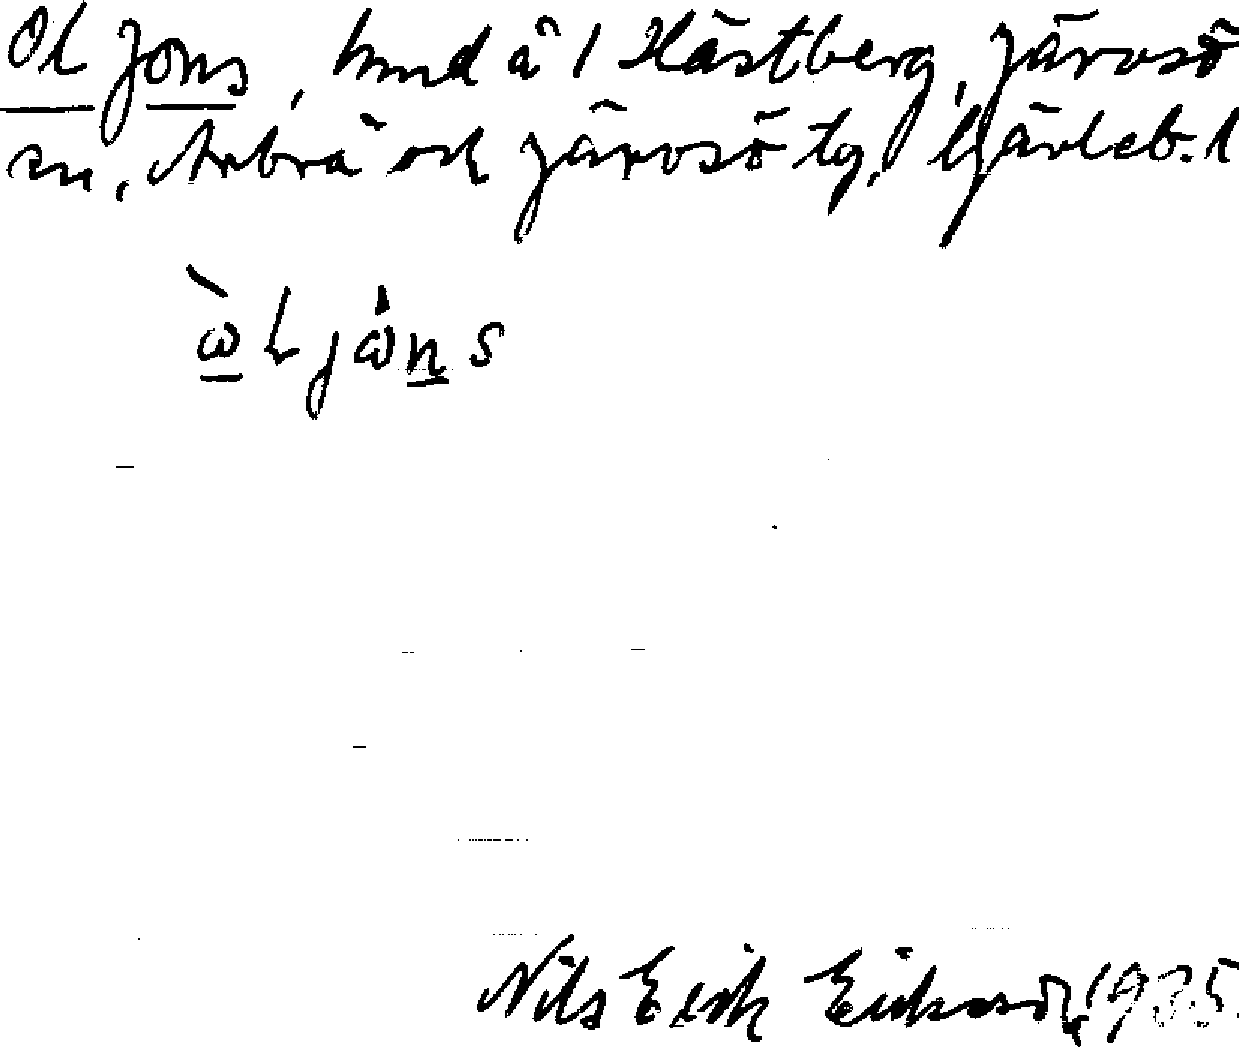 Ol Jons, hmd å 1 Hästberg, Järvsö
sn, Arbrå och Järvsö tg, Gävleb. l
Nils Erik Eriksson, 1935.